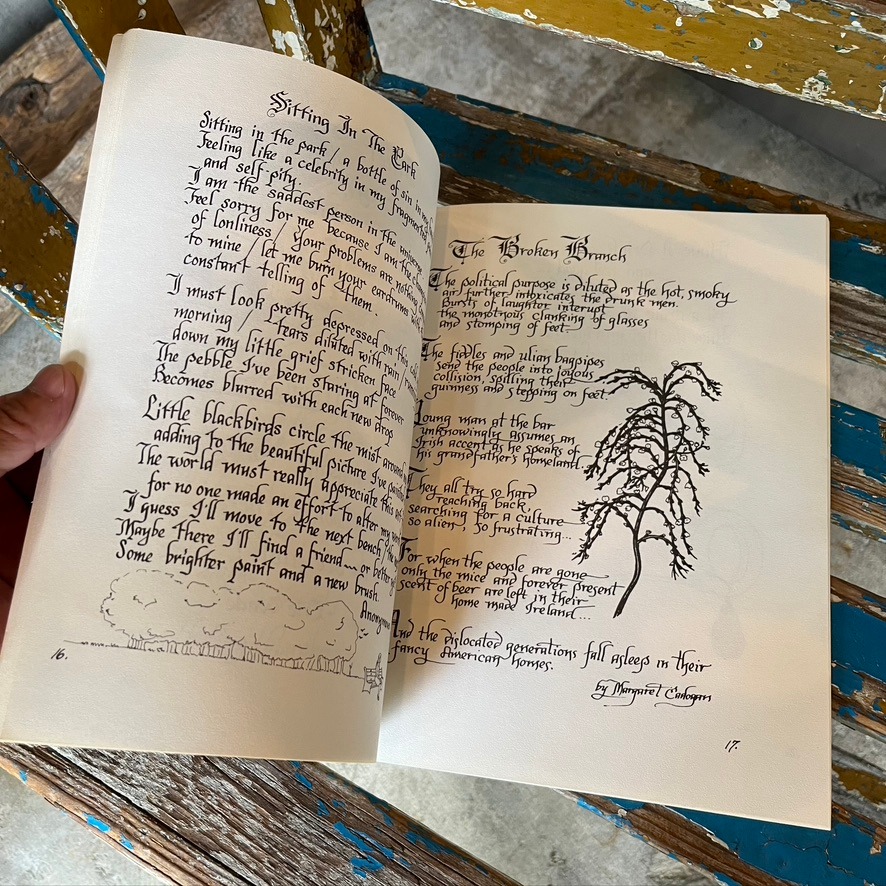 Sitting In The Park
Sitting in the park / a bottle of sin in my
Feeling like a celebrity in my fragmented
and self pity.
I am the saddest person in the universe
Feel sorry for me because I am the
of lonliness / Your problems are nothing
to mine / let me burn your eardrums with
constant telling of them.
I must look pretty depressed on this
morning / Tears diluted with rain /
down my little grief stricken face
The pebble I've been staring at forever
Becomes blurred with each new drop
Little blackbirds circle the mist around
adding to the beautiful picture I've painted
The world must really appreciate this
for no one made an effort to alter my
I guess I'll move to the next bench,
Maybe there I'll find a friend... or better
Some brighter paint and a new brush.
Anonymous
16.
The Broken Branch
The political purpose is diluted as the hot, smoky
air further intoricates the drunk men.
Bursts of laughter interupt
the monotrous clanking of glasses
and stomping of feet.
The fiddles and ulian bagpipes
send the people into joyous
collision, spilling their
guinness and stepping on feet.
Young man at the bar
unknowingly assumes an
Irish accent as he speaks of
his grandfather's homeland.
They all try so hard
reaching back,
searching for a culture
so alien, so frustrating...
For when the people are gone
only the mice and forever present
scent of beer are left in their
home made Ireland...
And the dislocated generations fall asleep in their
fancy American homes.
by Margaret
17.